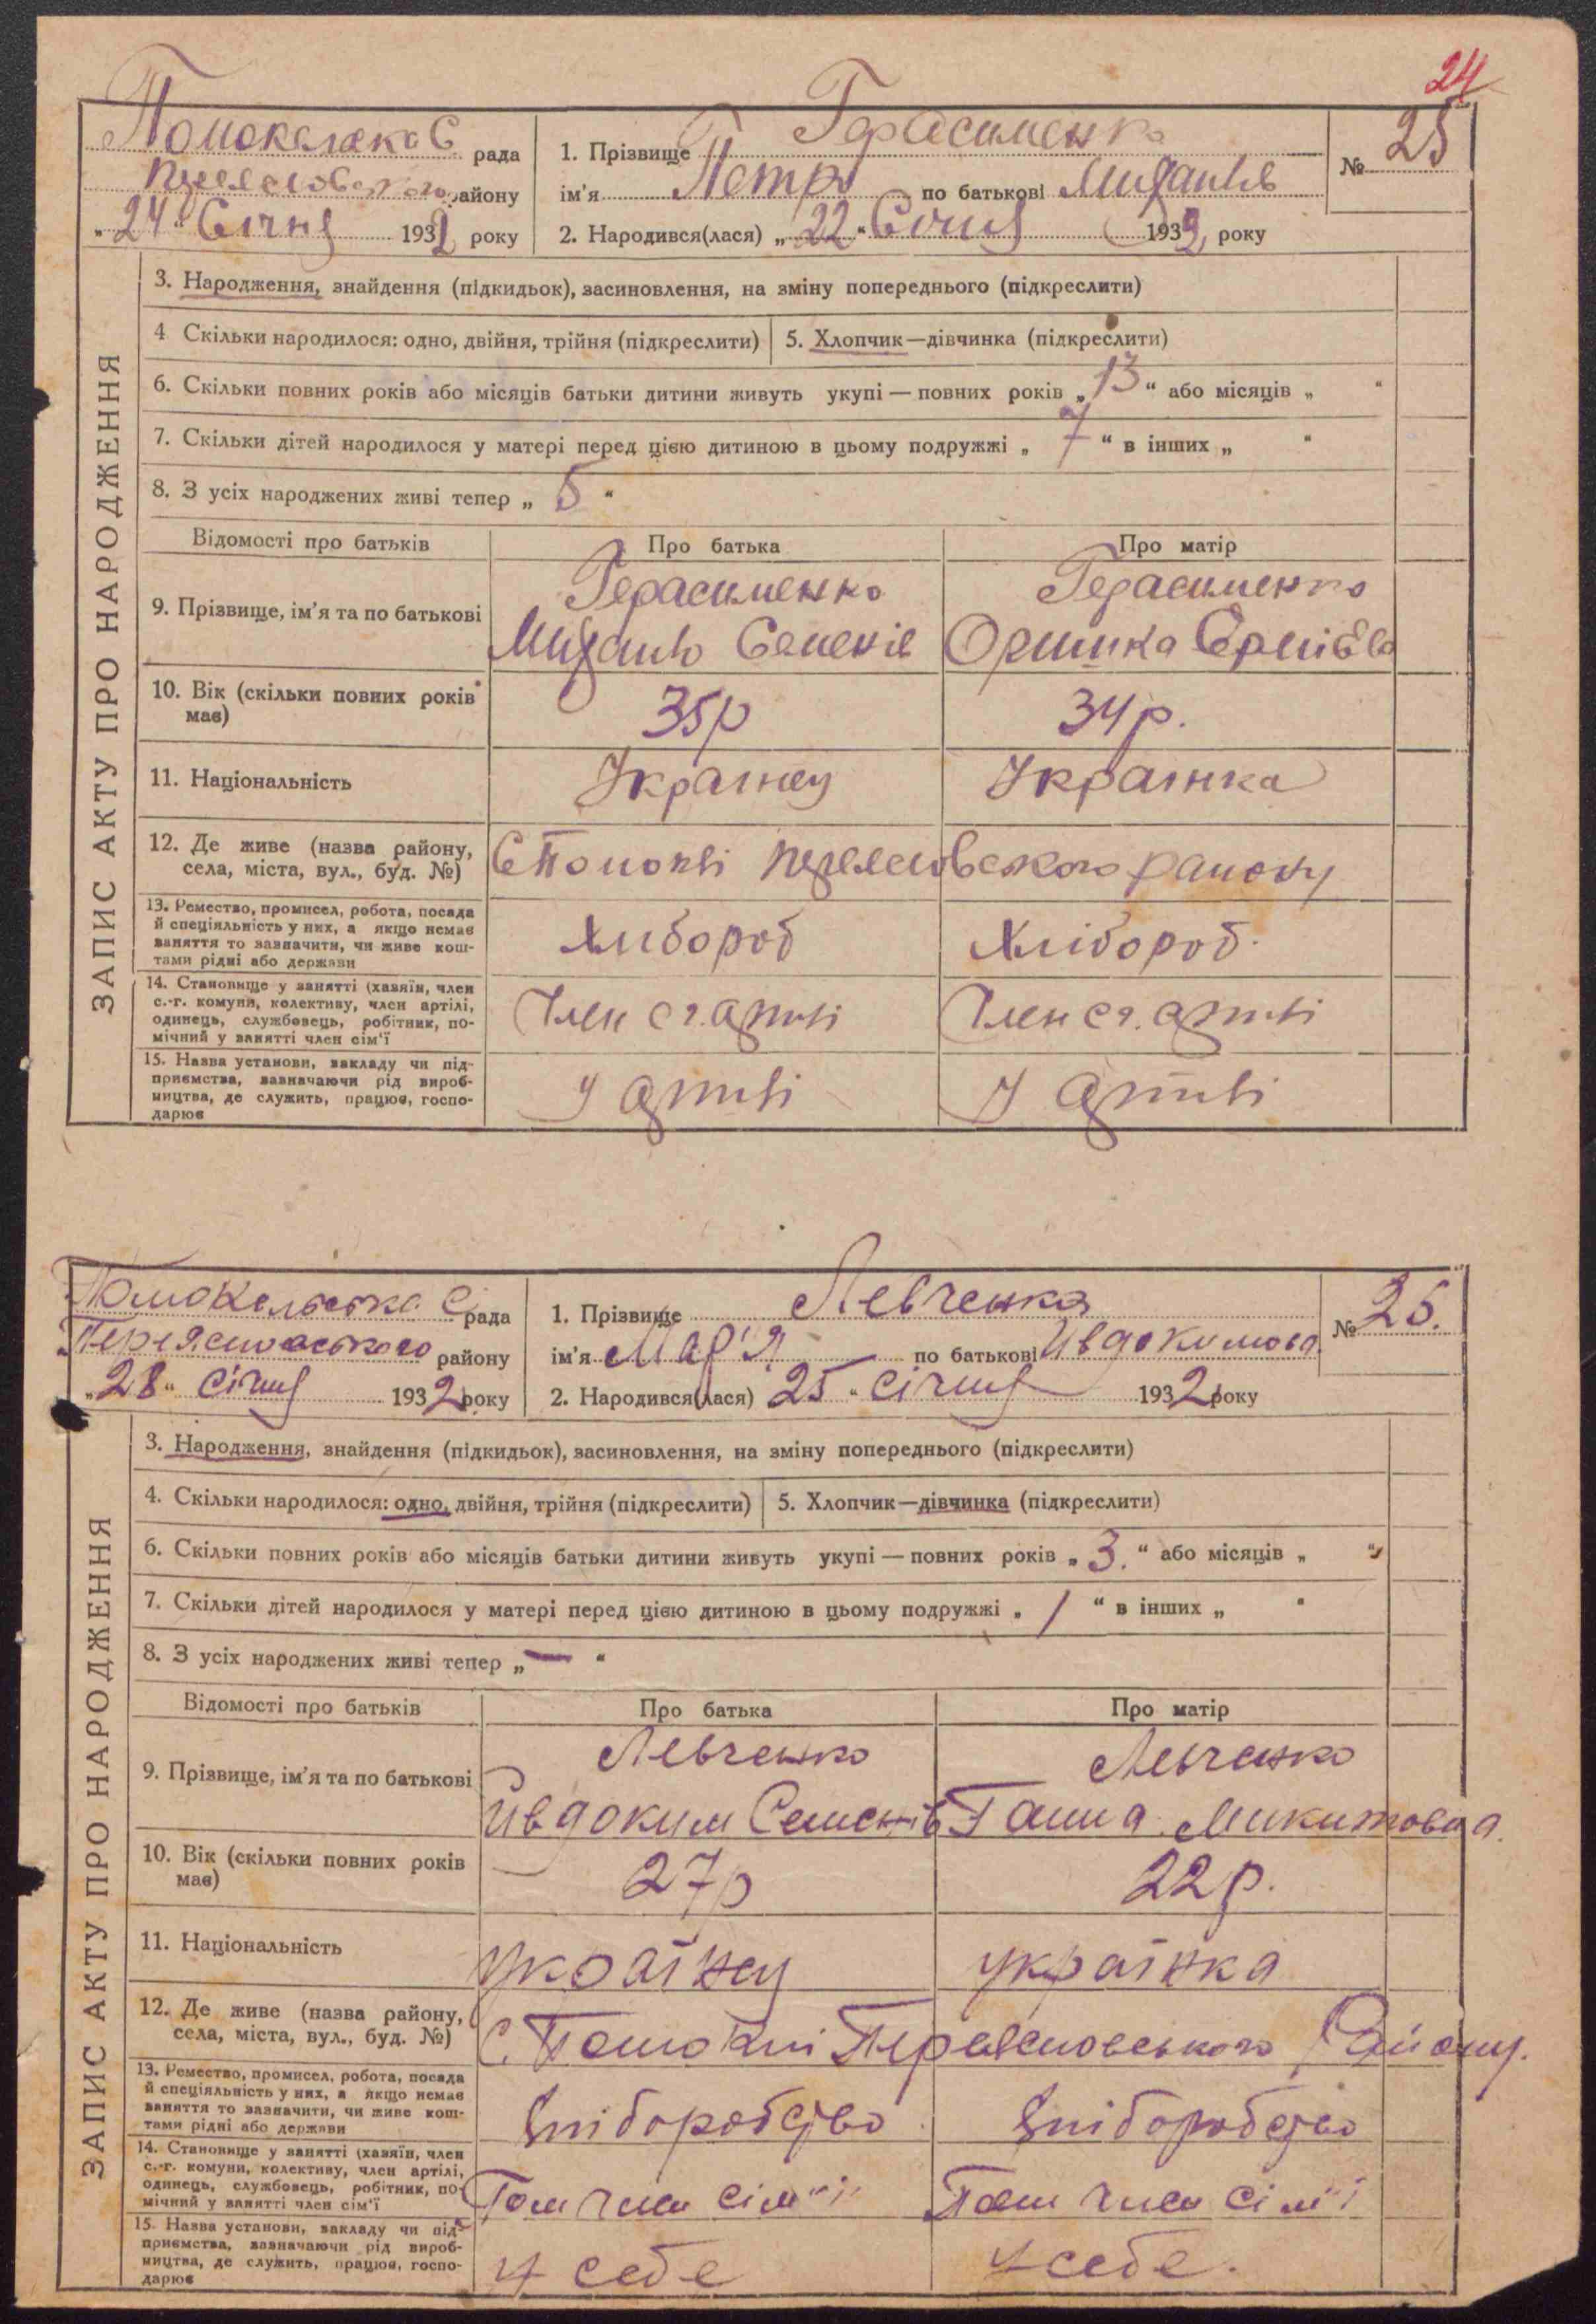 24
Помокельска С рада
Переяславського району
„24“ Січня 1932 року
1. Прізвище Герасименко
ім'я Петро по батькові Михайлів
№ 25
2. Народився(лася) „22“ Січня 1932 року
ЗАПИС АКТУ ПРО НАРОДЖЕННЯ
3. Народження, знайдення (підкидьок), засиновлення, на зміну попереднього (підкреслити)
4 Скільки народилося: одно, двійня, трійня (підкреслити) 5. Хлопчик—дівчинка (підкреслити)
6. Скільки повних років або місяців батьки дитини живуть укупі — повних років „13“ або місяців „ “
7. Скільки дітей народилося у матері перед цією дитиною в цьому подружжі „7“ в інших „ “
8. З усіх народжених живі тепер „5“
Відомості про батьків Про батька Про матір
9. Прізвище, ім'я та по батькові
Герасименко Герасименко
Михайло Семенів Оришка
10. Вік (скільки повних років має)
35р 34р.
11. Національність Українец Українка
12. Де живе (назва району, села, міста, вул., буд. №)
С Помоклі Переяславського району
13. Ремество, промисел, робота, посада
й спеціяльність у них, а якщо немає
заняття то зазначити, чи живе кош-
тами рідні або держави
Хлибороб Хлібороб.
14. Становище у занятті (хазяїн, член
с.-г. комуни, колективу, член артілі,
одинець, службовець, робітник, по-
мічний у занятті член сім'ї
Член с г. артілі Член с г. артілі
15. Назва установи, закладу чи під-
приємства, зазначаючи рід вироб-
ництва, де служить, працює, госпо-
дарює
У артілі У артілі
Помокельська С. рада
Переяславського району
„28“ січня 1932 року
1. Прізвище Левченко
ім'я Мар'я по батькові Ивдокимова
№ 26.
2. Народився(лася) 25“ січня 1932 року
ЗАПИС АКТУ ПРО НАРОДЖЕННЯ
3. Народження, знайдення (підкидьок), засиновлення, на зміну попереднього (підкреслити)
4. Скільки народилося: одно, двійня, трійня (підкреслити) 5. Хлопчик—дівчинка (підкреслити)
6. Скільки повних років або місяців батьки дитини живуть укупі — повних років „3.“ або місяців „ “
7. Скільки дітей народилося у матері перед цією дитиною в цьому подружжі „1“ в інших „ “
8. З усіх народжених живі тепер „—“
Відомості про батьків Про батька Про матір
9. Прізвище, ім'я та по батькові
Левченко Левченко
Ивдоким Семенів Ганна Микитовна
10. Вік (скільки повних років має)
27р 22р.
11. Національність українец українка
12. Де живе (назва району, села, міста, вул., буд. №)
С. Помоклі Переяславського Району.
13. Ремество, промисел, робота, посада
й спеціяльність у них, а якщо немає
заняття то зазначити, чи живе кош-
тами рідні або держави
хліборобство хліборобство
14. Становище у занятті (хазяїн, член
с.-г. комуни, колективу, член артілі,
одинець, службовець, робітник, по-
мічний у занятті член сім'ї
Пом член сім"ї Пом член сім"ї
15. Назва установи, закладу чи під-
приємства, зазначаючи рід вироб-
ництва, де служить, працює, госпо-
дарює
у себе у себе.